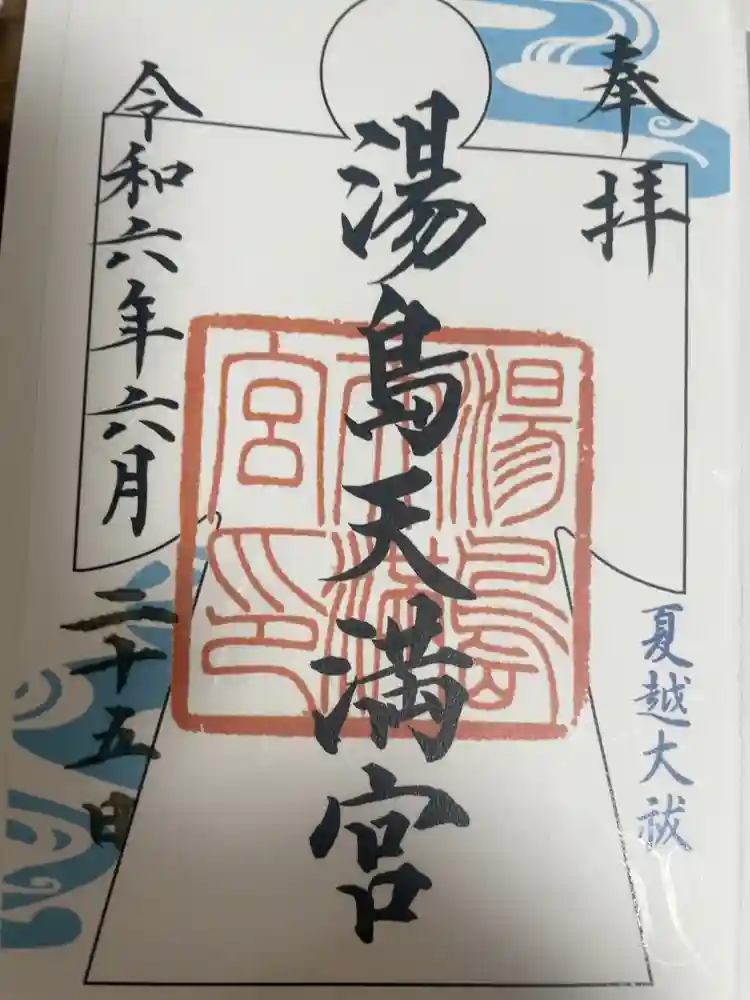 奉拝
夏越大祓
湯島天満宮
湯島
天満
宮印
令和六年六月二十五日